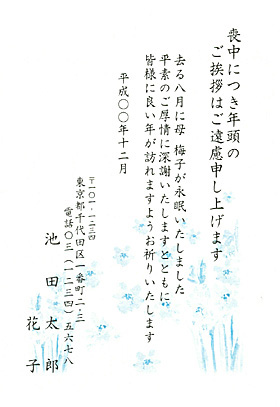 喪中につき年頭の
ご挨拶はご遠慮申し上げます
去る八月に母 梅子が永眠いたしました
平素のご厚情に深謝いたしますとともに
皆様に良い年が訪れますようお祈りいたします
平成〇〇年十二月
〒一〇一-一二三四
東京都千代田区一番町二-三
電話〇三(一二三四)五六七八
池田太郎
花子